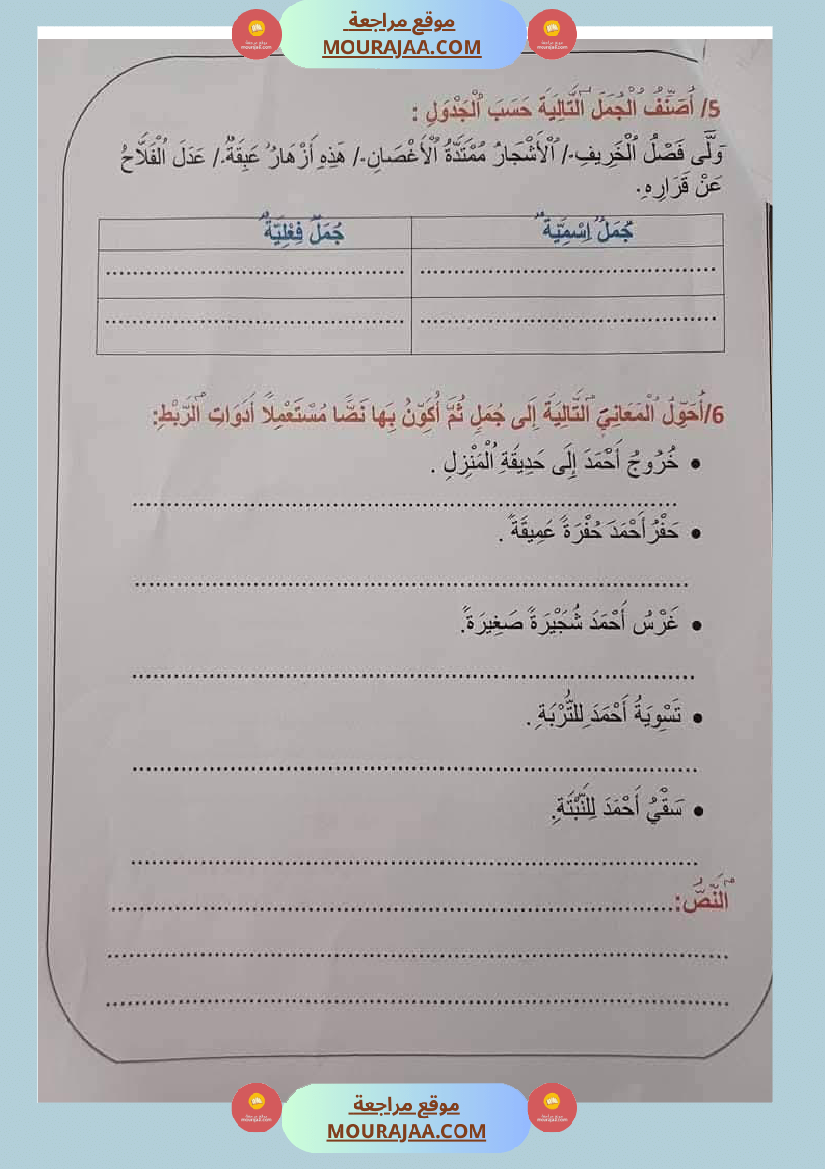 موقع مراجعة
MOURAJAA.COM
5/ أُصَنِّفُ ٱلْجُمَلَ ٱلتَّالِيَةَ حَسَبَ ٱلْجَدْوَلِ :
وَلَّى فَصْلُ ٱلْخَرِيفِ./ ٱلْأَشْجَارُ مُمْتَدَّةُ ٱلْأَغْصَانِ./ هَذِهِ أَزْهَارٌ عَبِقَةٌ./ عَدَلَ ٱلْفَلَّاحُ
عَنْ قَرَارِهِ.
جُمَلٌ اِسْمِيَّةٌ جُمَلٌ فِعْلِيَّةٌ
6/أُحَوِّلُ ٱلْمَعَانِيَ ٱلتَّالِيَةَ إِلَى جُمَلٍ ثُمَّ أُكَوِّنُ بِهَا نَصًّا مُسْتَعْمِلًا أَدَوَاتِ ٱلرَّبْطِ:
• خُرُوجُ أَحْمَدَ إِلَى حَدِيقَةِ ٱلْمَنْزِلِ .
• حَفْرُ أَحْمَدَ حُفْرَةً عَمِيقَةً .
• غَرْسُ أَحْمَدَ شُجَيْرَةً صَغِيرَةً.
• تَسْوِيَةُ أَحْمَدَ لِلتُّرْبَةِ .
• سَقْيُ أَحْمَدَ لِلنَّبْتَةِ.
ٱلنَّصُّ:
موقع مراجعة
MOURAJAA.COM